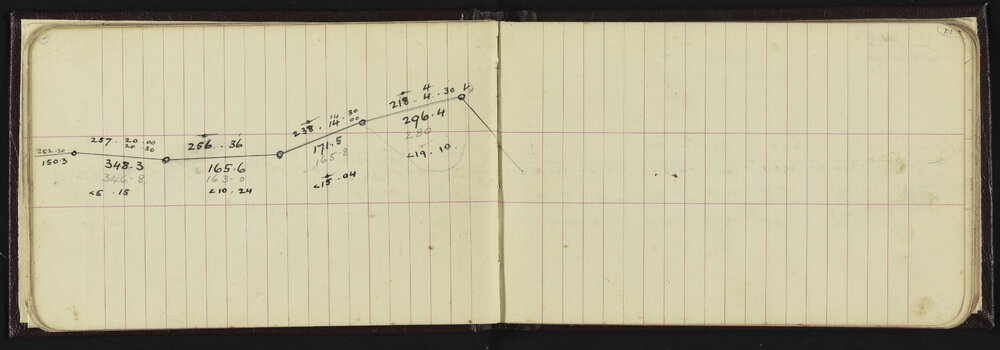 252.20
150.3
257.. 20 .00
20 .30
348.3
346.8
<5 .. 15
256 .. 36
165.6
163.0
<10 .. 24
14 .. 30
238 .. 14 .. 00
171.5
165.8
<15 .. 04
4
218 .. 4 .. 30
296.4
280
<19 .. 10
21